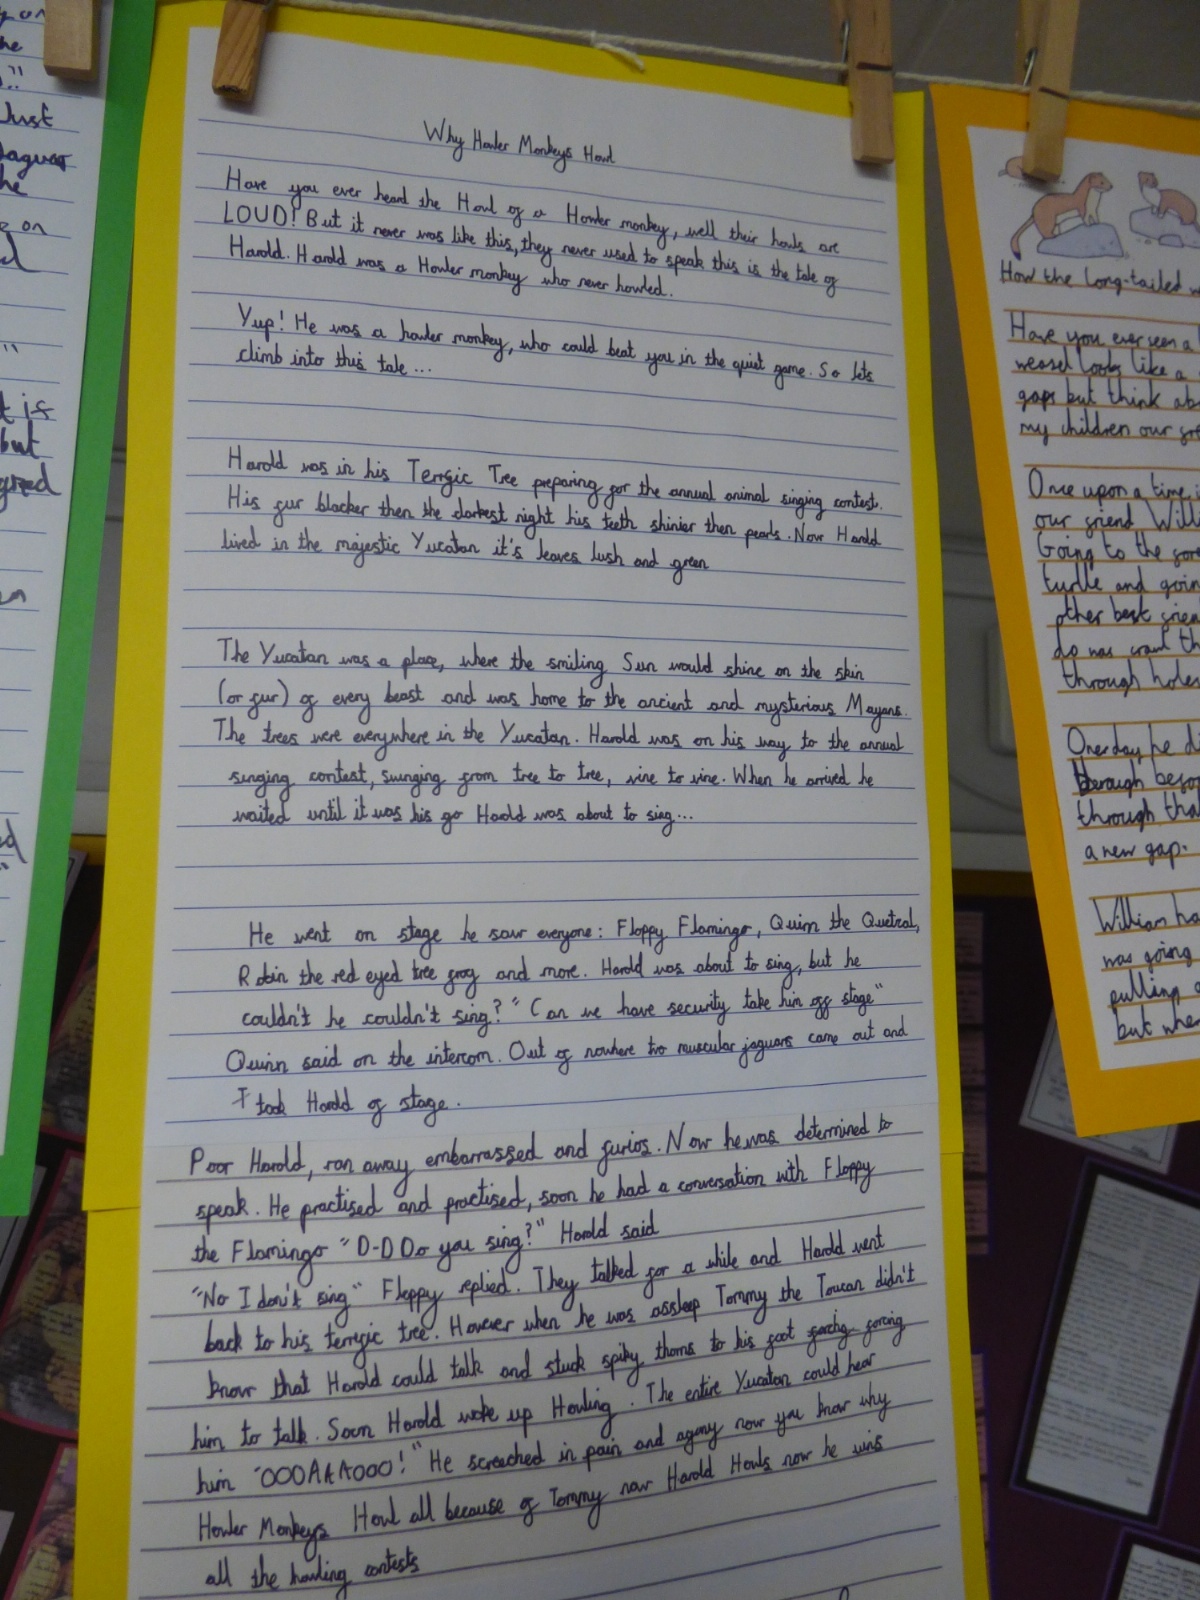 Why Howler Monkeys Howl
Have you ever heard the Howl of a Howler monkey, well their howls are
LOUD! But it never was like this, they never used to speak this is the tale of
Harold. Harold was a Howler monkey who never howled.
Yup! He was a howler monkey, who could beat you in the quiet game. So lets
climb into this tale...
Harold was in his Terrific Tree preparing for the annual animal singing contest.
His fur blacker then the darkest night his teeth shinier then pearls. Now Harold
lived in the majestic Yucatan it's leaves lush and green
The Yucatan was a place, where the smiling Sun would shine on the skin
(or fur) of every beast and was home to the ancient and mysterious Mayans.
The trees were everywhere in the Yucatan. Harold was on his way to the annual
singing contest, swinging from tree to tree, vine to vine. When he arrived he
waited until it was his go Harold was about to sing...
He went on stage he saw everyone: Floppy Flamingo, Quinn the Quetzal,
Robin the red eyed tree frog and more. Harold was about to sing, but he
couldn't he couldn't sing? "Can we have security take him off stage"
Quinn said on the intercom. Out of nowhere two muscular jaguars came out and
took Harold of stage.
Poor Harold, ran away embarrassed and furios. Now he was determined to
speak. He practised and practised, soon he had a conversation with Floppy
the Flamingo "D-D Do you sing?" Harold said
"No I don't sing" Floppy replied. They talked for a while and Harold went
back to his terryfic tree. However when he was assleep Tommy the Toucan didn't
know that Harold could talk and stuck spiky thorns to his foot forcing
him to talk. Soon Harold woke up Howling. The entire Yucatan could hear
him "OOOAAAOOO!" He screached in pain and agony now you know why
Howler Monkeys Howl all because of Tommy now Harold Howls now he wins
all the howling contests
How the long-tailed
Have you ever seen a
weasel looks like a
gaps but think
my children our
Once upon a time
our friend
Going to the
turtle and
other best
do was
through holes
One day he
through
through
a new gap.
William
was going
pulling
but
Just
Jaguar
he
on
is
but